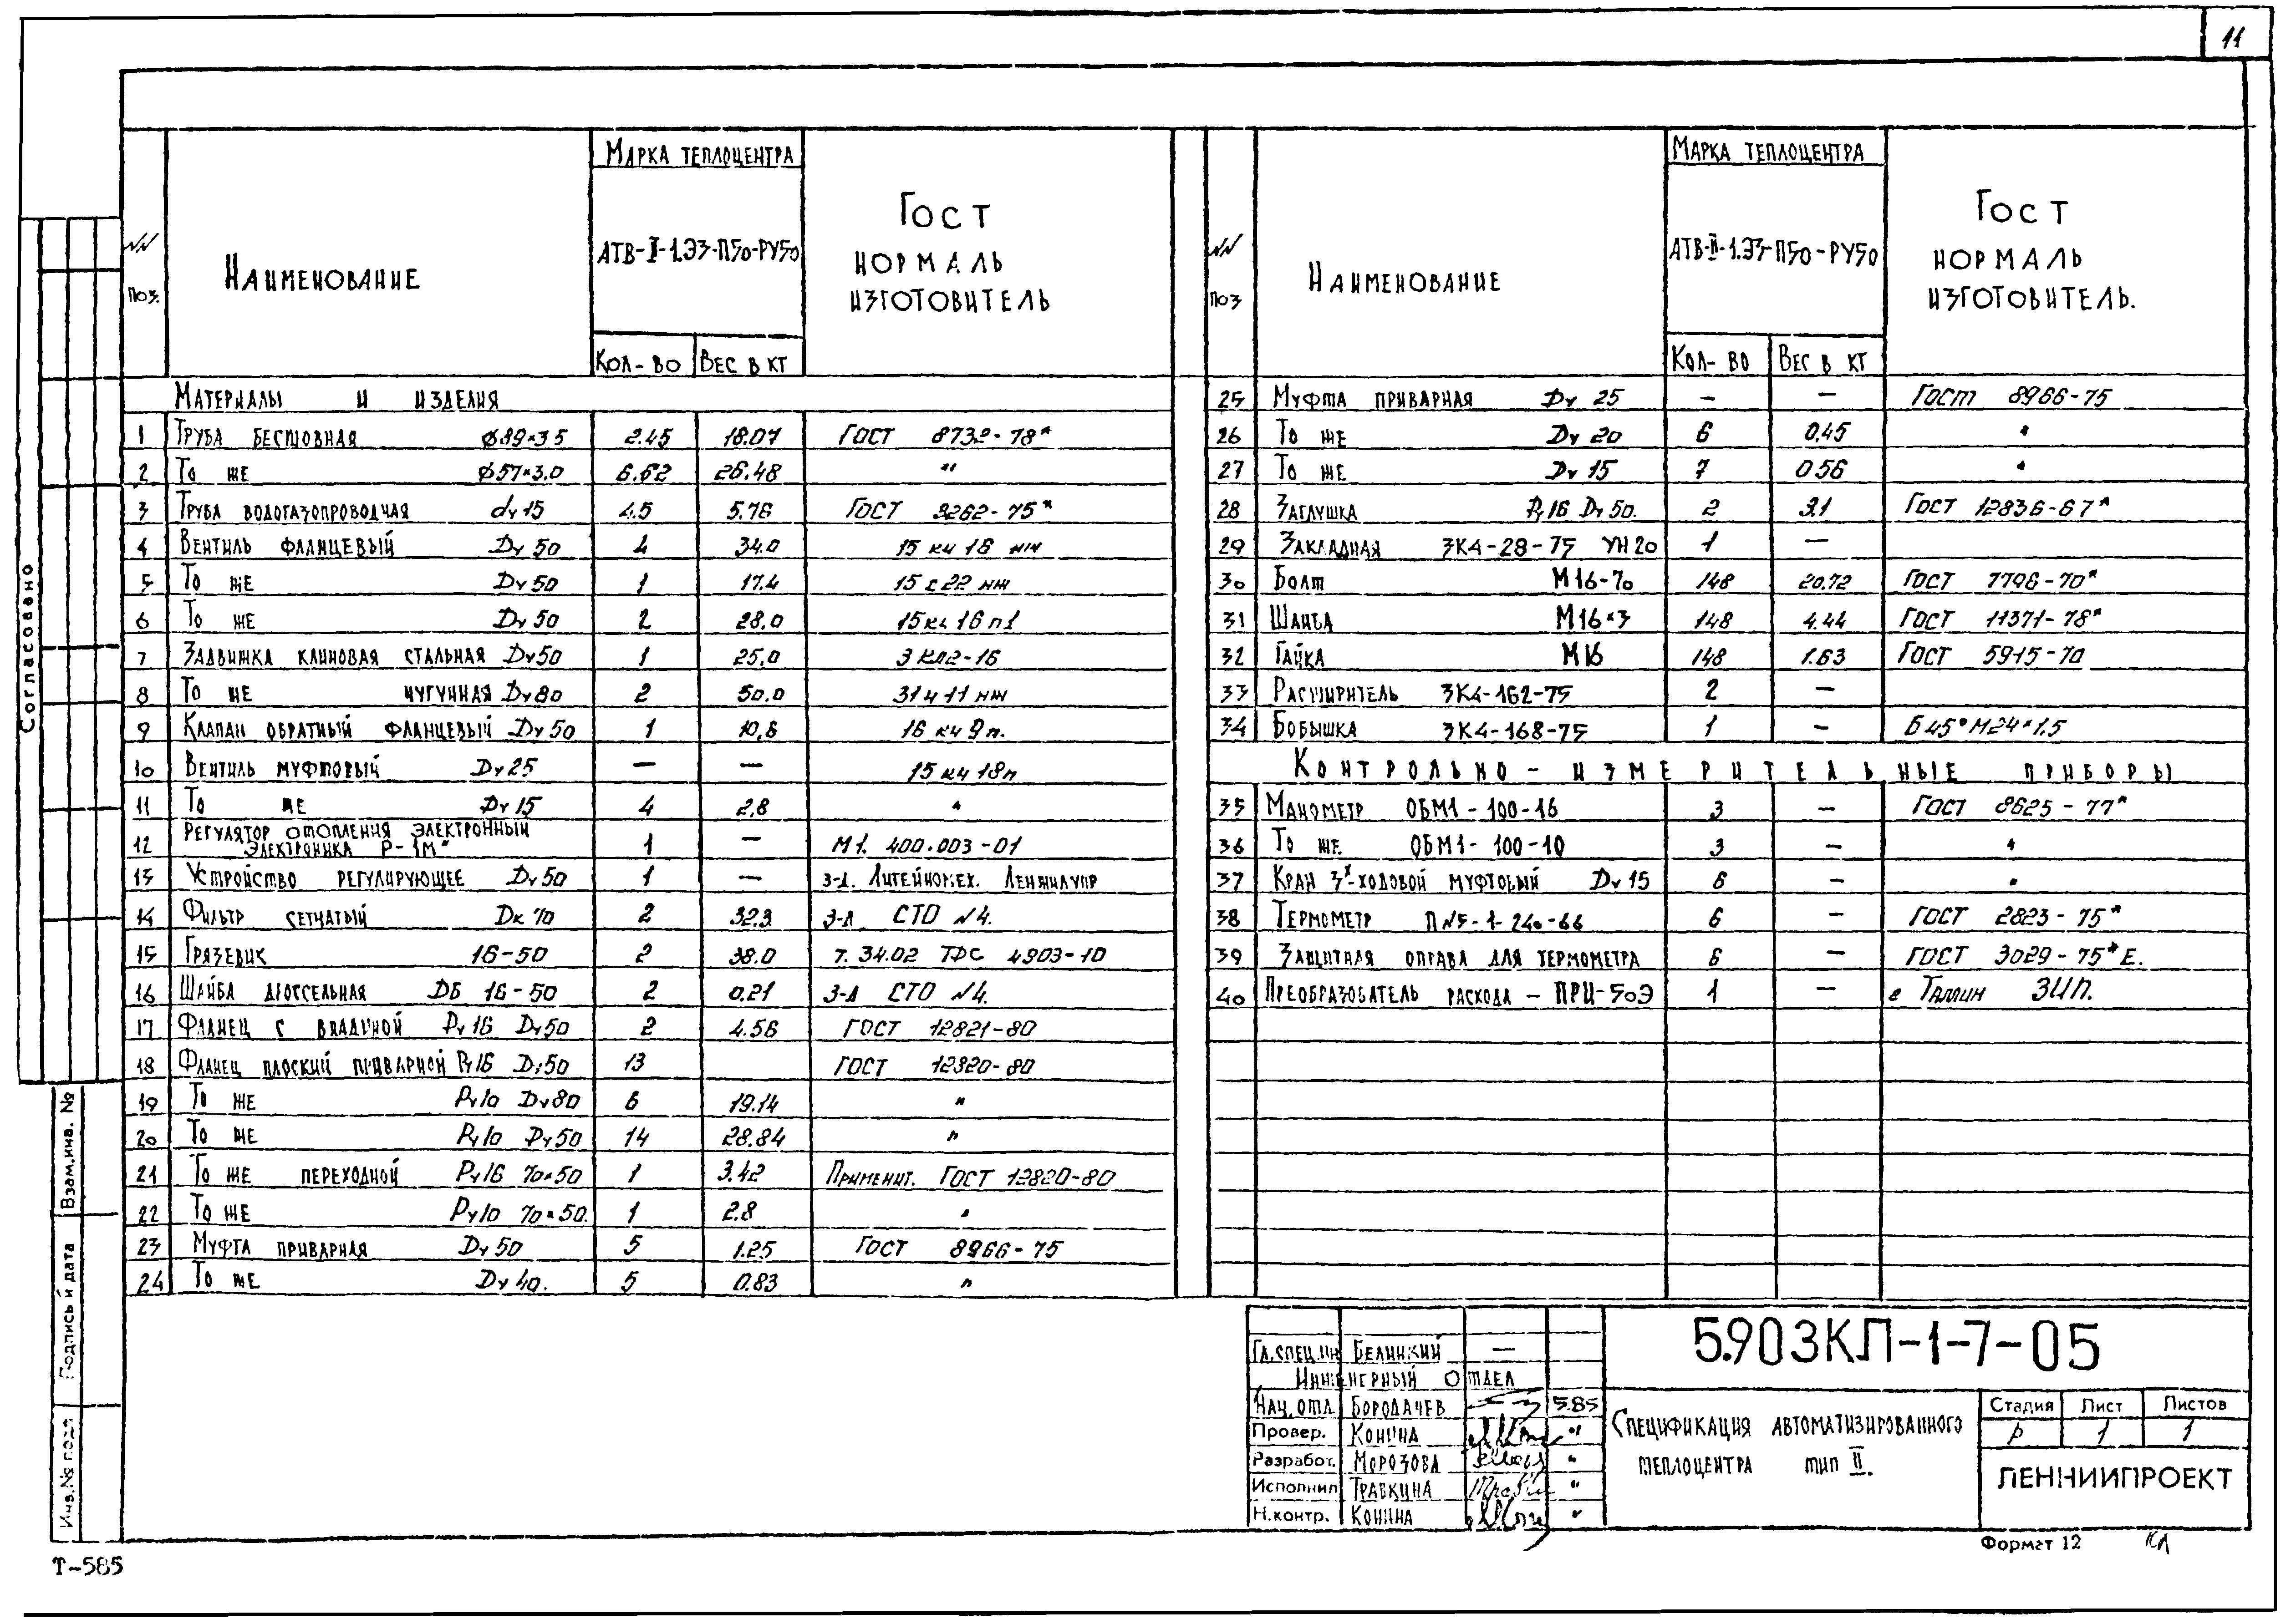 11
NN поз.
Наименование
Марка теплоцентра
АТВ-II-1.ЭЗ-П50-РУ50
Кол-во
Вес в кг
ГОСТ нормаль изготовитель
Материалы и изделия
1 Труба бесшовная ϕ89×3.5 2.45 18.07 ГОСТ 8732-78*
2 То же ϕ57×3.0 6.62 26.48 "
3 Труба водогазопроводная dу15 4.5 5.76 ГОСТ 3262-75*
4 Вентиль фланцевый Dу 50 4 34.0 15 кч 16 нж
5 То же Dу 50 1 17.4 15 с 22 нж
6 То же Dу 50 2 28.0 15кч 16 п1
7 Задвижка клиновая стальная Dу50 1 25.0 ЗКЛ2-16
8 То же чугунная Dу80 2 50.0 31ч 11 нж
9 Клапан обратный фланцевый Dу 50 1 10,6 16 кч 9 п.
10 Вентиль муфтовый Dу25 — — 15 кч 18п
11 То же Dу 15 4 2,8 "
12 Регулятор отопления электронный
Электроника Р-1М" 1 — М1. 400.003-01
13 Устройство регулирующее Dу50 1 — З-д. Литейномех. Ленжилупр
14 Фильтр сетчатый Dк 70 2 32.3 З-д СТО N4.
15 Грязевик 16-50 2 38.0 Т. 34.02 ТДС 4903-10
16 Шайба дроссельная ДБ 16-50 2 0.21 З-д СТО N4.
17 Фланец с впадиной Ру16 Dу50 2 4.56 ГОСТ 12821-80
18 Фланец плоский приварной Ру16 Dу50 13 ГОСТ 12320-80
19 То же Ру10 Dу80 6 19.14 "
20 То же Ру10 Dу50 14 28.84 "
21 То же переходной Ру16 70×50 1 3.42 Применит. ГОСТ 12820-80
22 То же Ру10 70×50. 1 2.8 "
23 Муфта приварная Dу50 5 1.25 ГОСТ 8966-75
24 То же Dу 40. 5 0.83 "
NN поз
Наименование
Марка теплоцентра
АТВ-II-1.ЭЗ-П50-РУ50
Кол-во
Вес в кг
ГОСТ нормаль изготовитель.
25 Муфта приварная Dу 25 — — ГОСТ 8966-75
26 То же Dу 20 6 0.45 "
27 То же Dу 15 7 0.56 "
28 Заглушка Ру16 Dу 50. 2 3.1 ГОСТ 12836-67*
29 Закладная ЗК4-28-75 УН20 1 —
30 Болт М16-70 148 20.72 ГОСТ 7796-70*
31 Шайба М16×3 148 4.44 ГОСТ 11371-78*
32 Гайка М16 148 1.63 ГОСТ 5915-70
33 Расширитель ЗК4-162-75 2 —
34 Бобышка ЗК4-168-75 1 — Б 45° М24×1.5
Контрольно-измерительные приборы
35 Манометр ОБМ1-100-16 3 — ГОСТ 8625-77*
36 То же. ОБМ1-100-10 3 — "
37 Кран 3х-ходовой муфтовый Dу 15 6 — "
38 Термометр П N5-1-240-66 6 — ГОСТ 2823-75*
39 Защитная оправа для термометра 6 — ГОСТ 3029-75* Е.
40 Преобразователь расхода – ПРИ-50Э 1 — г Таллин ЗИП.
Согласовано
Взам.инв. №
Подпись и дата
Инв.№ подл
Гл.спец.ин Белинкий —
Инженерный отдел
Нач. отд. Бородачев 5.85
Провер. Конина "
Разработ. Морозова "
Исполнил Травкина "
Н.контр. Конина "
5.903КЛ-1-7-05
Спецификация автоматизированного
теплоцентра тип II.
Стадия Лист Листов
Р 1 1
ЛЕННИИПРОЕКТ
Формат 12
Т-585